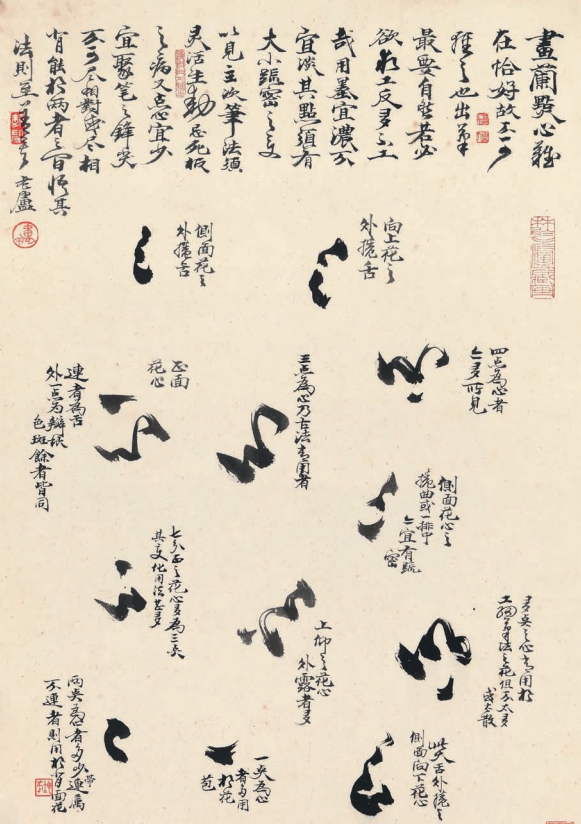 畫蘭點心難
在恰好故不可
最要自然若必
欲求工反多不工
哉用墨宜濃不
宜淡其點須有
大小疏密之變
以見主次筆法須
灵活生動忌死板
之病又点心宜少
宜聚笔之鋒尖
不可尽相對齊尽相
背能於兩者之間悟其
法則至
向上花之
外捲舌
側面花之
外捲舌
四点為心者
亦多所見
三点為心乃古法常用者
正面
花心
連者為舌
外一点为辦根
色斑餘者皆同
側面花心之
捲曲或一排中
亦宜有疏
密
七分面之花心多為三点
其变化用法甚多
上仰之花心
外露者多
多点之心常用於
工細寫法之花但不太多
或太散
兩点為心者多少連帶属
不連者則用於背面花
一点為心
者多用
於花
苞
此大舌外捲之
側面向下花心